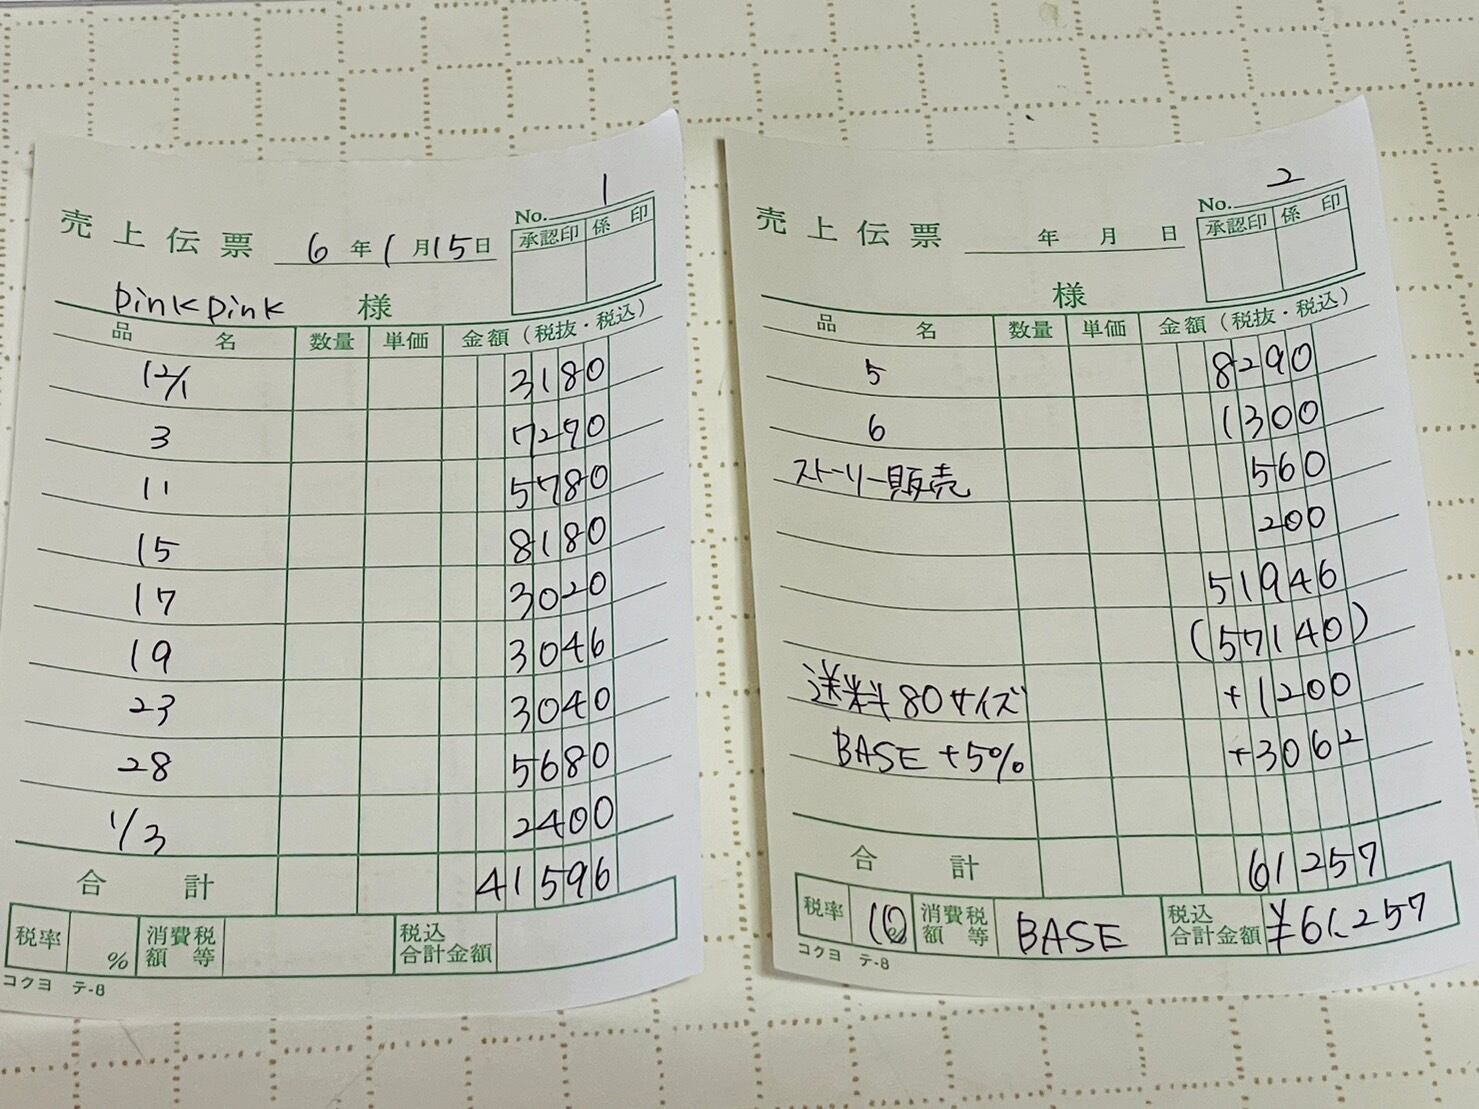 No. 1
売上伝票 6年1月15日
承認印 係印
pinkpink 様
品名 数量 単価 金額(税抜・税込)
12/1 3180
3 7290
11 5780
15 8180
17 3020
19 3046
23 3040
28 5680
1/3 2400
合計 41596
税率 % 消費税額等 税込合計金額
コクヨ テ-8
No. 2
売上伝票 年 月 日
承認印 係印
様
品名 数量 単価 金額(税抜・税込)
5 8290
6 1300
ストーリー販売 560
200
51946
(57140)
送料80サイズ +1200
BASE +5% +3062
合計 61257
税率 10 消費税額等 BASE 税込合計金額 ¥61,257
コクヨ テ-8